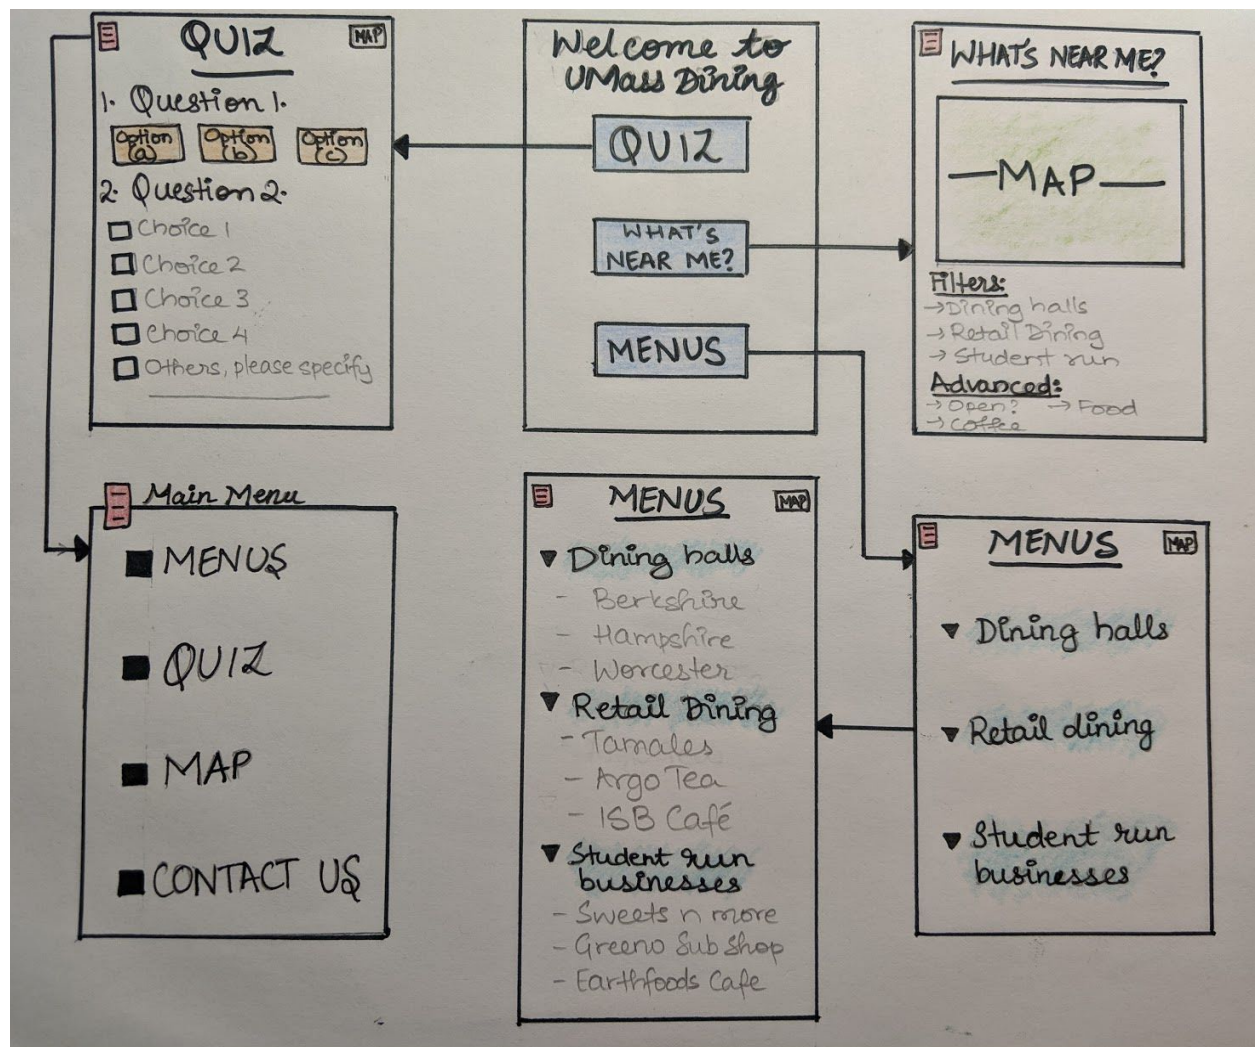 QUIZ
MAP
1. Question 1.
Option (a)
Option (b)
Option (c)
2. Question 2.
Choice 1
Choice 2
Choice 3
Choice 4
Others, please specify
Welcome to
UMass Dining
QUIZ
WHAT'S
NEAR ME?
MENUS
WHAT'S NEAR ME?
MAP
Filters:
→Dining halls
→Retail Dining
→Student run
Advanced:
→Open? →Food
→Coffee
Main Menu
MENUS
QUIZ
MAP
CONTACT US
MENUS
MAP
▼ Dining halls
- Berkshire
- Hampshire
- Worcester
▼ Retail Dining
- Tamales
- Argo Tea
- ISB Café
▼ Student run
businesses
- Sweets n more
- Greeno Sub Shop
- Earthfoods Cafe
MENUS
MAP
▼ Dining halls
▼ Retail dining
▼ Student run
businesses